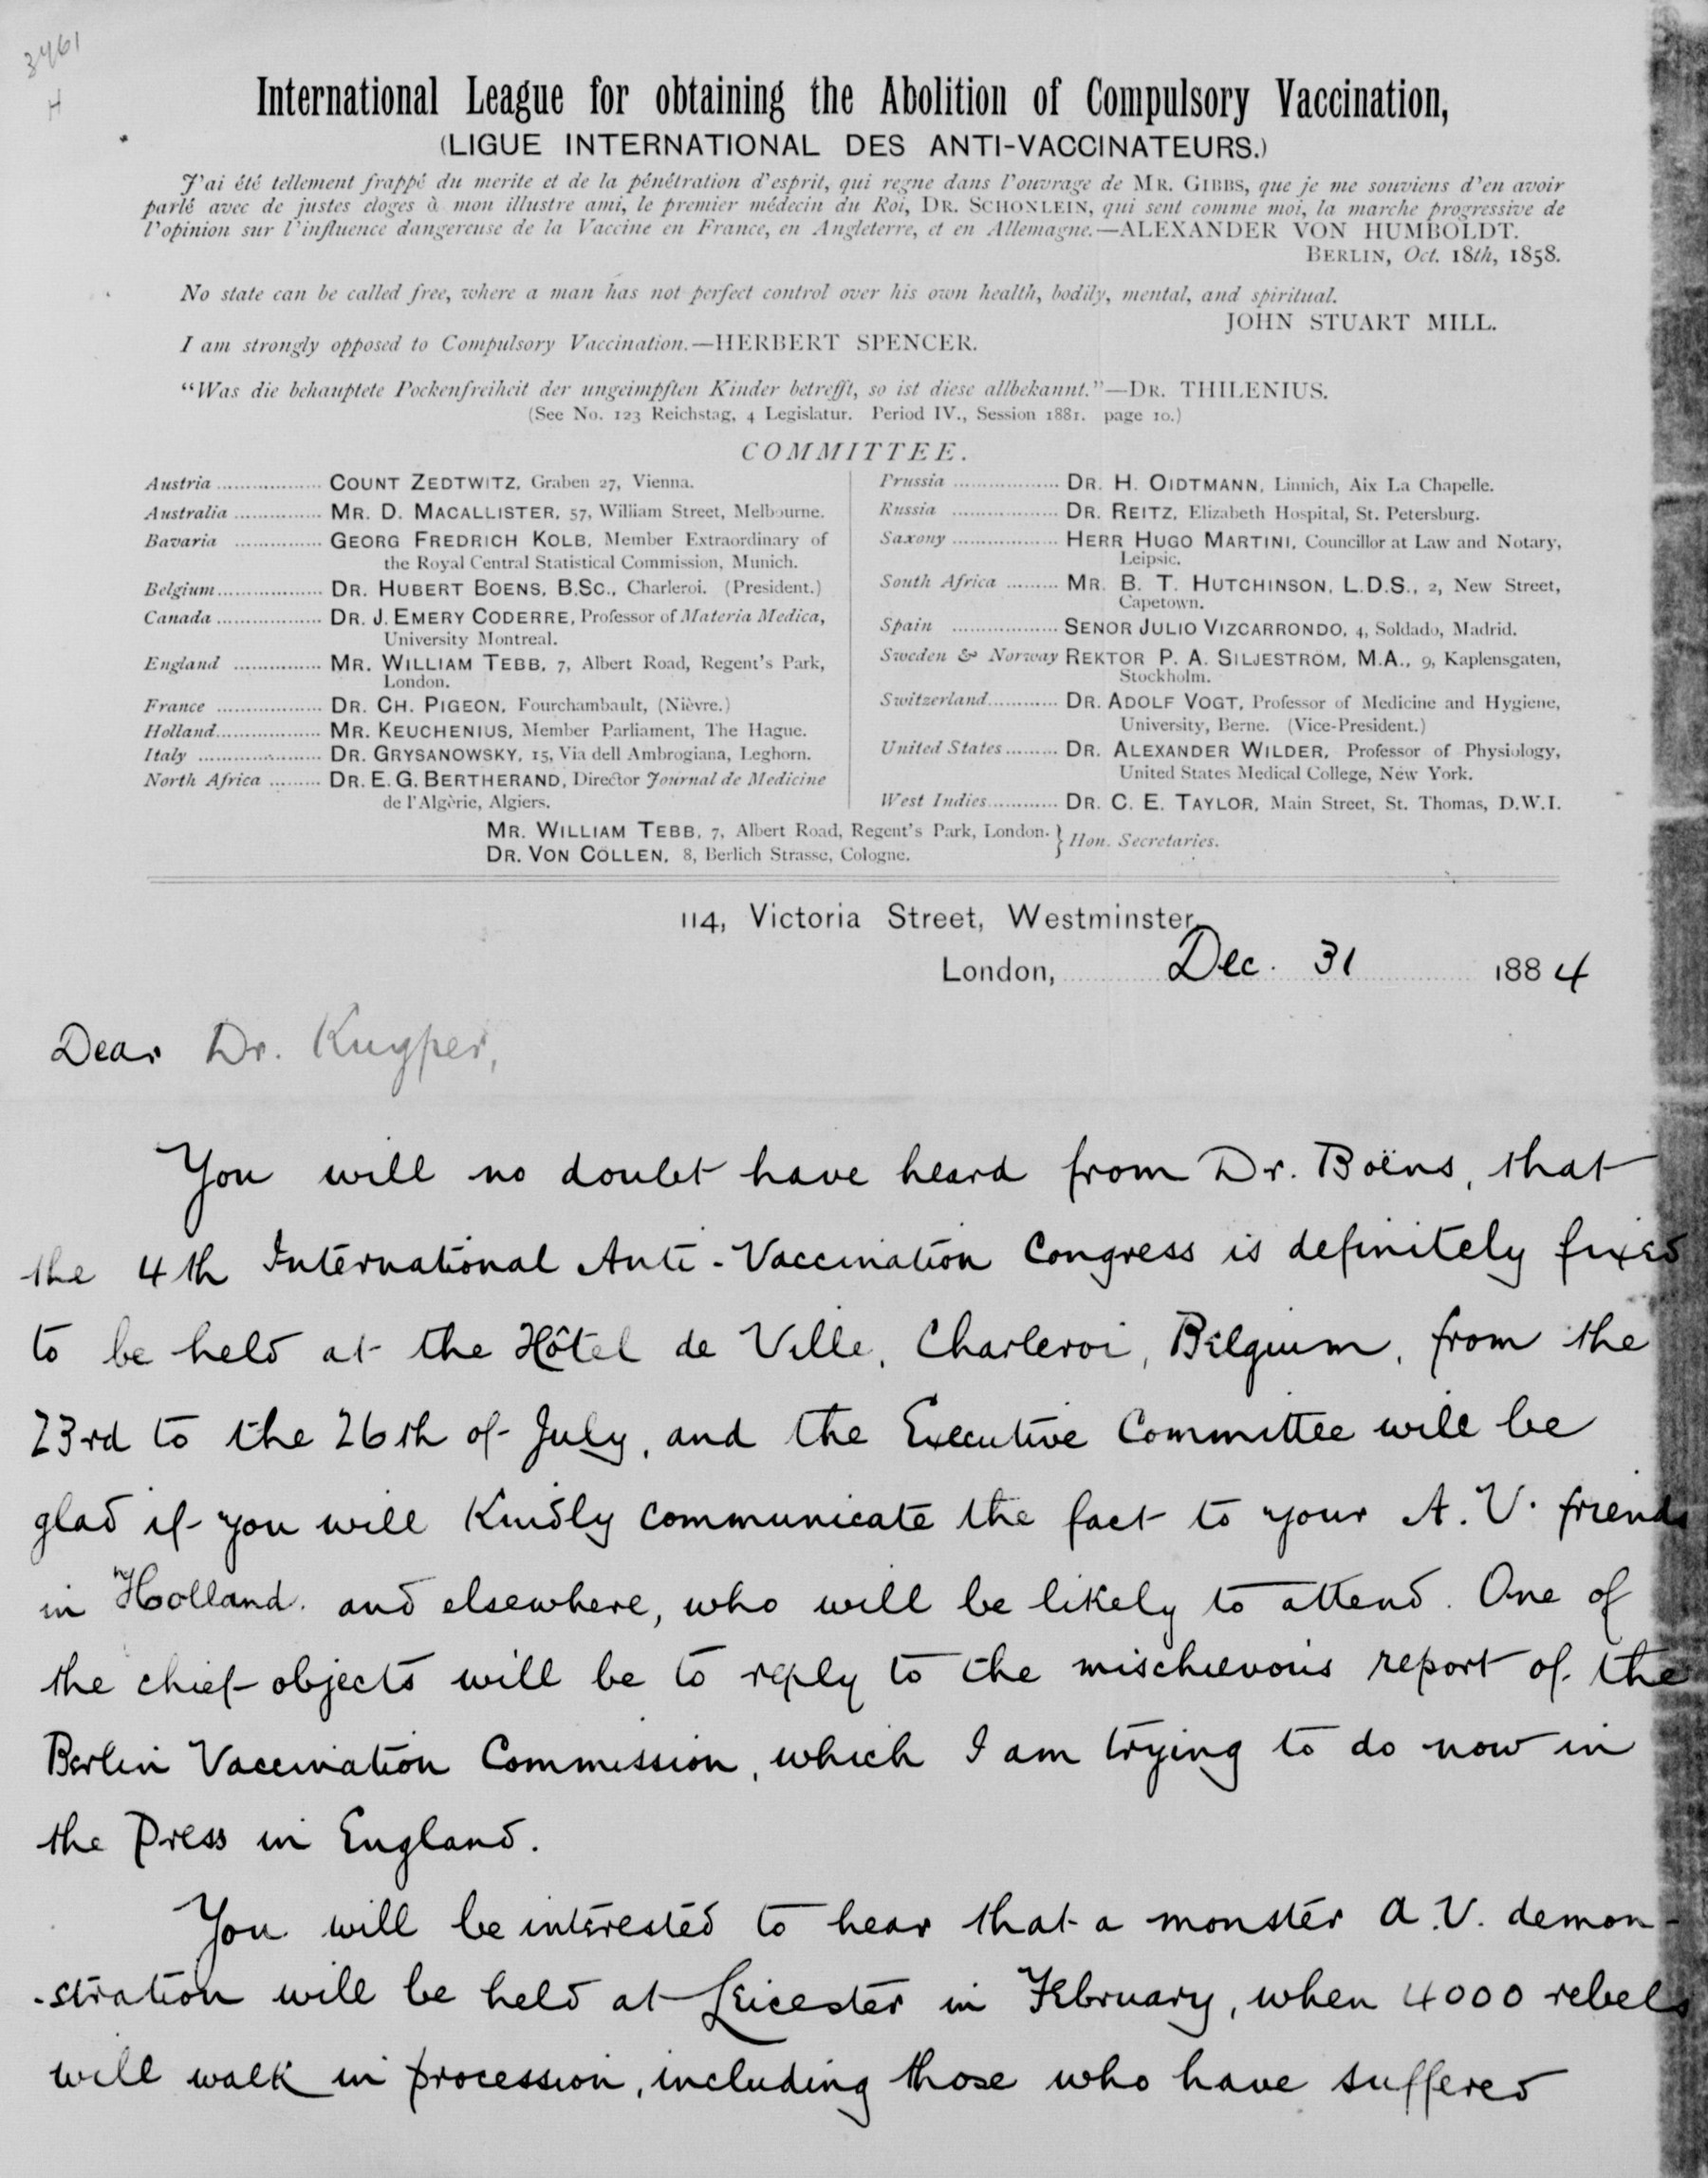 3461
H
International League for obtaining the Abolition of Compulsory Vaccination,
(LIGUE INTERNATIONAL DES ANTI-VACCINATEURS.)
J'ai été tellement frappé du merite et de la pénétration d'esprit, qui regne dans l'ouvrage de MR. GIBBS, que je me souviens d'en avoir
parlé avec de justes eloges à mon illustre ami, le premier médecin du Roi, DR. SCHONLEIN, qui sent comme moi, la marche progressive de
l'opinion sur l'influence dangereuse de la Vaccine en France, en Angleterre, et en Allemagne.—ALEXANDER VON HUMBOLDT.
BERLIN, Oct. 18th, 1858.
No state can be called free, where a man has not perfect control over his own health, bodily, mental, and spiritual.
JOHN STUART MILL.
I am strongly opposed to Compulsory Vaccination.—HERBERT SPENCER.
"Was die behauptete Pockenfreiheit der ungeimpften Kinder betrefft, so ist diese allbekannt."—DR. THILENIUS.
(See No. 123 Reichstag, 4 Legislatur. Period IV., Session 1881. page 10.)
COMMITTEE.
Austria .................. COUNT ZEDTWITZ, Graben 27, Vienna.
Australia ............... MR. D. MACALLISTER, 57, William Street, Melbourne.
Bavaria ............... GEORG FREDRICH KOLB, Member Extraordinary of
the Royal Central Statistical Commission, Munich.
Belgium.................. DR. HUBERT BOENS, B.SC., Charleroi. (President.)
Canada .................. DR. J. EMERY CODERRE, Professor of Materia Medica,
University Montreal.
England ............... MR. WILLIAM TEBB, 7, Albert Road, Regent's Park,
London.
France .................. DR. CH. PIGEON, Fourchambault, (Nièvre.)
Holland.................. MR. KEUCHENIUS, Member Parliament, The Hague.
Italy ..................... DR. GRYSANOWSKY, 15, Via dell Ambrogiana, Leghorn.
North Africa ......... DR. E. G. BERTHERAND, Director Journal de Medicine
de l'Algèrie, Algiers.
Prussia .................. DR. H. OIDTMANN, Linnich, Aix La Chapelle.
Russia .................. DR. REITZ, Elizabeth Hospital, St. Petersburg.
Saxony .................. HERR HUGO MARTINI, Councillor at Law and Notary,
Leipsic.
South Africa ......... MR. B. T. HUTCHINSON, L.D.S., 2, New Street,
Capetown.
Spain .................. SENOR JULIO VIZCARRONDO, 4, Soldado, Madrid.
Sweden & Norway REKTOR P. A. SILJESTRÖM, M.A., 9, Kaplensgaten,
Stockholm.
Switzerland............ DR. ADOLF VOGT, Professor of Medicine and Hygiene,
University, Berne. (Vice-President.)
United States ......... DR. ALEXANDER WILDER, Professor of Physiology,
United States Medical College, New York.
West Indies............ DR. C. E. TAYLOR, Main Street, St. Thomas, D.W.I.
MR. WILLIAM TEBB, 7, Albert Road, Regent's Park, London. } Hon. Secretaries.
DR. VON CÖLLEN, 8, Berlich Strasse, Cologne.
114, Victoria Street, Westminster,
London, Dec. 31 1884
Dear Dr. Kuyper,
You will no doubt have heard from Dr. Boëns, that
the 4th International Anti-Vaccination Congress is definitely fixed
to be held at the Hôtel de Ville, Charleroi, Belgium, from the
23rd to the 26th of July, and the Executive Committee will be
glad if you will Kindly communicate the fact to your A.V. friends
in Holland. and elsewhere, who will be likely to attend. One of
the chief objects will be to reply to the mischievous report of the
Berlin Vaccination Commission, which I am trying to do now in
the Press in England.
You will be interested to hear that a monster A.V. demon-
-stration will be held at Leicester in February, when 4000 rebels
will walk in procession, including those who have suffered